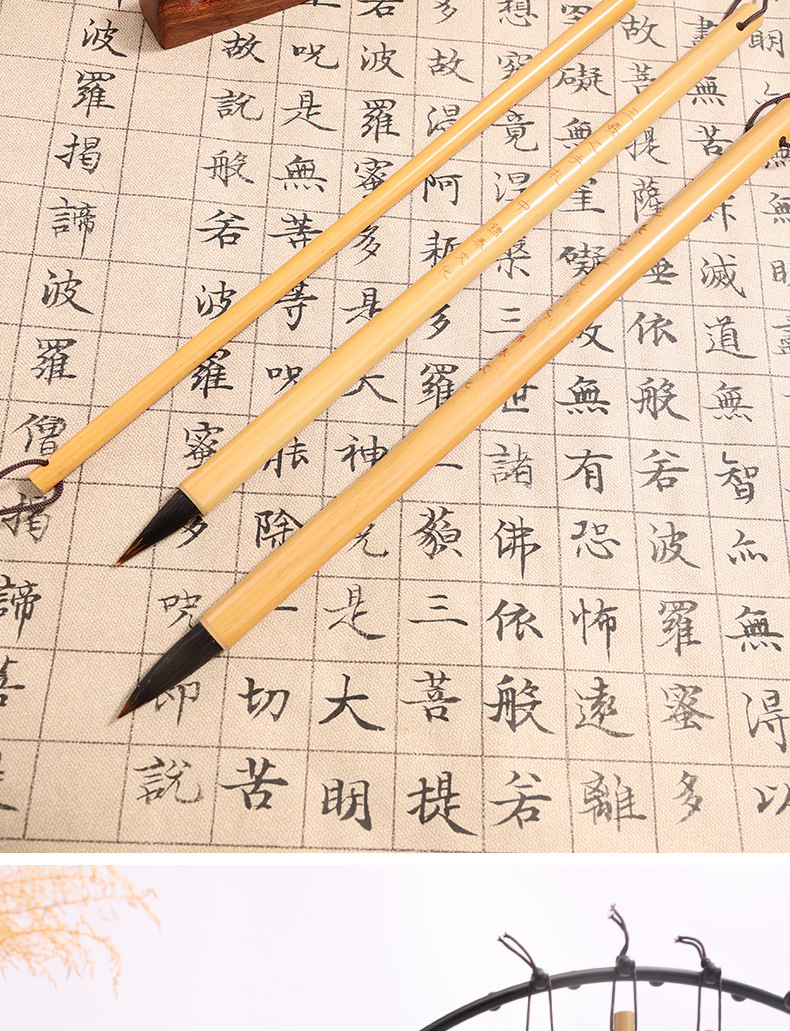 明無明
無苦滅道無智亦無得以
故菩提薩埵依般若波羅蜜多
礙無罣礙故無有恐怖遠離
想究竟涅槃三世諸佛依般若
多故得阿耨多羅三藐三菩提
若波羅蜜多是大神呪是大明
呪是無等等呪能除一切苦
故說般若波羅蜜多呪即說
波羅揭諦波羅僧揭諦菩